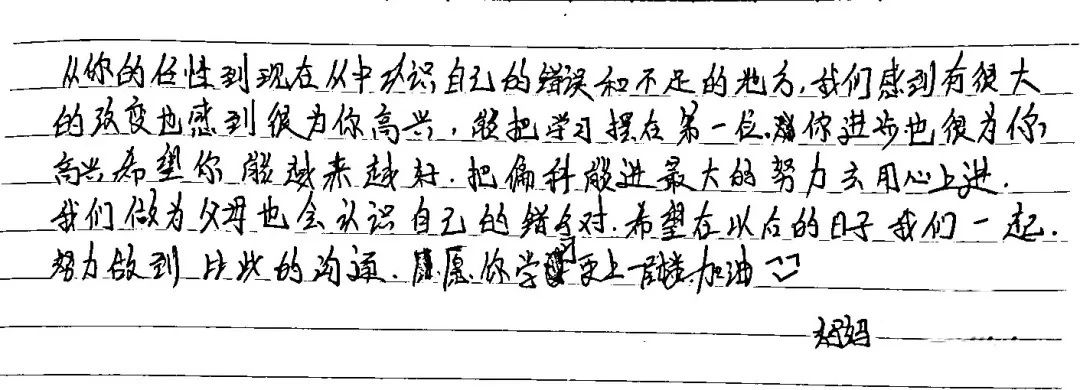 从你的任性到现在从中认识自己的错误和不足的地方,我们感到有很大
的改变也感到很为你高兴,能把学习摆在第一位.你进步也很为你
高兴希望你能越来越好.把偏科能进最大的努力去用心上进.
我们做为父母也会认识自己的错与对.希望在以后的日子我们一起.
努力做到比此的沟通.愿你学习更上一楼.加油
妈妈